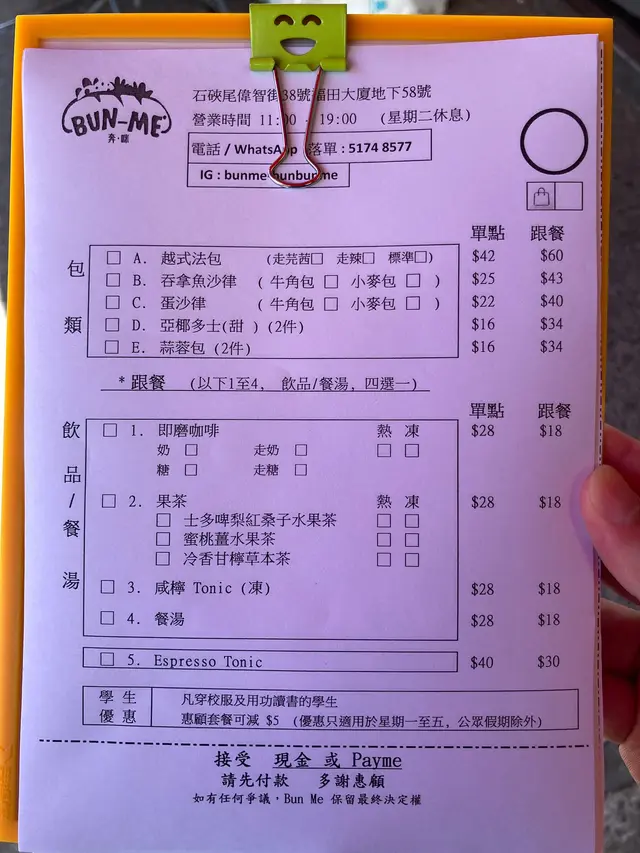 BUN-ME
奔·咪
石硤尾偉智街38號福田大廈地下58號
營業時間 11:00 - 19:00 (星期二休息)
電話 / WhatsApp 落單 : 5174 8577
IG : bunme
bunbunme
單點 跟餐
包類
□ A. 越式法包 (走芫茜□ 走辣□ 標準□) $42 $60
□ B. 吞拿魚沙律 ( 牛角包 □ 小麥包 □ ) $25 $43
□ C. 蛋沙律 ( 牛角包 □ 小麥包 □ ) $22 $40
□ D. 亞椰多士(甜 ) (2件) $16 $34
□ E. 蒜蓉包 (2件) $16 $34
* 跟餐 (以下1至4, 飲品/餐湯, 四選一)
單點 跟餐
飲品/餐湯
□ 1. 即磨咖啡 熱 凍 $28 $18
奶 □ 走奶 □ □ □
糖 □ 走糖 □
□ 2. 果茶 熱 凍 $28 $18
□ 士多啤梨紅桑子水果茶 □ □
□ 蜜桃薑水果茶 □ □
□ 冷香甘檸草本茶 □ □
□ 3. 咸檸 Tonic (凍) $28 $18
□ 4. 餐湯 $28 $18
□ 5. Espresso Tonic $40 $30
學生優惠
凡穿校服及用功讀書的學生
惠顧套餐可減 $5 (優惠只適用於星期一至五, 公眾假期除外)
接受 現金 或 Payme
請先付款 多謝惠顧
如有任何爭議，Bun Me 保留最終決定權